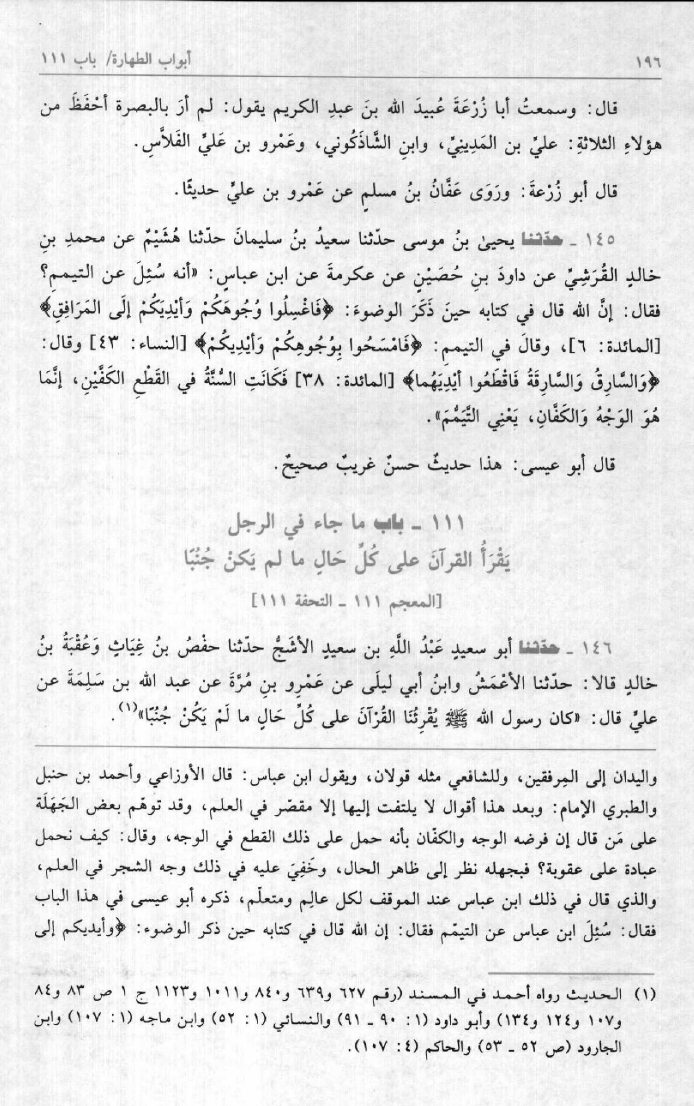 ١٩٦
أبواب الطهارة/ باب ١١١
قال: وسمعتُ أبا زُرْعَةَ عُبيدَ الله بنَ عبدِ الكريم يقول: لم أرَ بالبصرة أحْفَظَ من
هؤلاءِ الثلاثةِ: عليِّ بن المَدِينِيِّ، وابنِ الشَّاذَكُوني، وعَمْرو بن عَليٍّ الفَلاَّسِ.
قال أبو زُرعةَ: ورَوَى عَفَّانُ بنُ مسلمٍ عن عَمْرو بن عليٍّ حديثًا.
١٤٥ ـ حدّثنا يحيىٰ بنُ موسى حدّثنا سعيدُ بنُ سليمانَ حدّثنا هُشَيْمٌ عن محمدِ بنِ
خالدٍ القُرَشِيِّ عن داودَ بنِ حُصَيْنٍ عن عكرمةَ عن ابن عباسٍ: «أنه سُئِلَ عن التيممِ؟
فقال: إنَّ الله قال في كتابه حينَ ذَكَرَ الوضوءَ: ﴿فَاغْسِلُوا وُجُوهَكُمْ وَأَيْدِيَكُمْ إلَى المَرَافِقِ﴾
[المائدة: ٦]، وقالَ في التيمم: ﴿فَامْسَحُوا بِوُجُوهِكُمْ وَأَيْدِيكُمْ﴾ [النساء: ٤٣] وقال:
﴿وَالسَّارِقُ وَالسَّارِقَةُ فَاقْطَعُوا أيْدِيَهُما﴾ [المائدة: ٣٨] فَكَانَتِ السُّنَّةُ في القَطْعِ الكَفَّيْنِ، إنَّمَا
هُوَ الوَجْهُ وَالكَفَّانِ، يَعْنِي التَّيَمُّمَ».
قال أبو عيسى: هذا حديثٌ حسنٌ غريبٌ صحيحٌ.
١١١ ـ باب ما جاء في الرجل
يَقْرَأُ القرآنَ على كُلِّ حَالٍ ما لم يَكنْ جُنُبًا
[المعجم ١١١ ـ التحفة ١١١]
١٤٦ ـ حدّثنا أبو سعيدٍ عَبْدُ اللَّهِ بن سعيدٍ الأشَجُّ حدّثنا حفْصُ بنُ غِيَاثٍ وَعُقْبَةُ بنُ
خالدٍ قالا: حدّثنا الأعْمَشُ وابنُ أبي ليلَى عن عَمْرِو بنِ مُرَّةَ عن عبد الله بن سَلِمَةَ عن
عليٍّ قال: «كان رسول الله ﷺ يُقْرِئُنَا القُرْآنَ على كُلِّ حَالٍ ما لَمْ يَكُنْ جُنُبًا»(١).
واليدان إلى المِرفقين، وللشافعي مثله قولان، ويقول ابن عباس: قال الأوزاعي وأحمد بن حنبل
والطبري الإمام: وبعد هذا أقوال لا يلتفت إليها إلا مقصّر في العلم، وقد توهّم بعض الجَهَلَة
على مَن قال إن فرضه الوجه والكفّان بأنه حمل على ذلك القطع في الوجه، وقال: كيف نحمل
عبادة على عقوبة؟ فبجهله نظر إلى ظاهر الحال، وخَفِيَ عليه في ذلك وجه الشجر في العلم،
والذي قال في ذلك ابن عباس عند الموقف لكل عالِم ومتعلّم، ذكره أبو عيسى في هذا الباب
فقال: سُئِلَ ابن عباس عن التيمّم فقال: إن الله قال في كتابه حين ذكر الوضوء: ﴿وأيديكم إلى
(١) الحديث رواه أحمد في المسند (رقم ٦٢٧ و٦٣٩ و٨٤٠ و١٠١١ و١١٢٣ ج ١ ص ٨٣ و٨٤
و١٠٧ و١٢٤ و١٣٤) وأبو داود (١: ٩٠ ـ ٩١) والنسائي (١: ٥٢) وابن ماجه (١: ١٠٧) وابن
الجارود (ص ٥٢ ـ ٥٣) والحاكم (٤: ١٠٧).